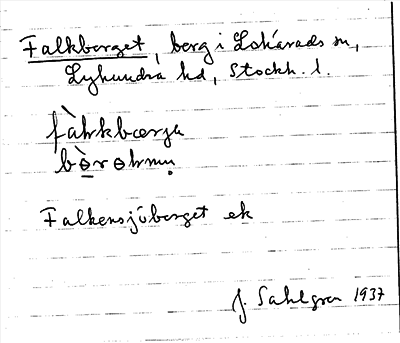 Falkberget, berg i Lohärads sn,
Lyhundra hd, Stockh. l.
fàlrkbærja
Falkensjöberget ek
J. Sahlgren 1937